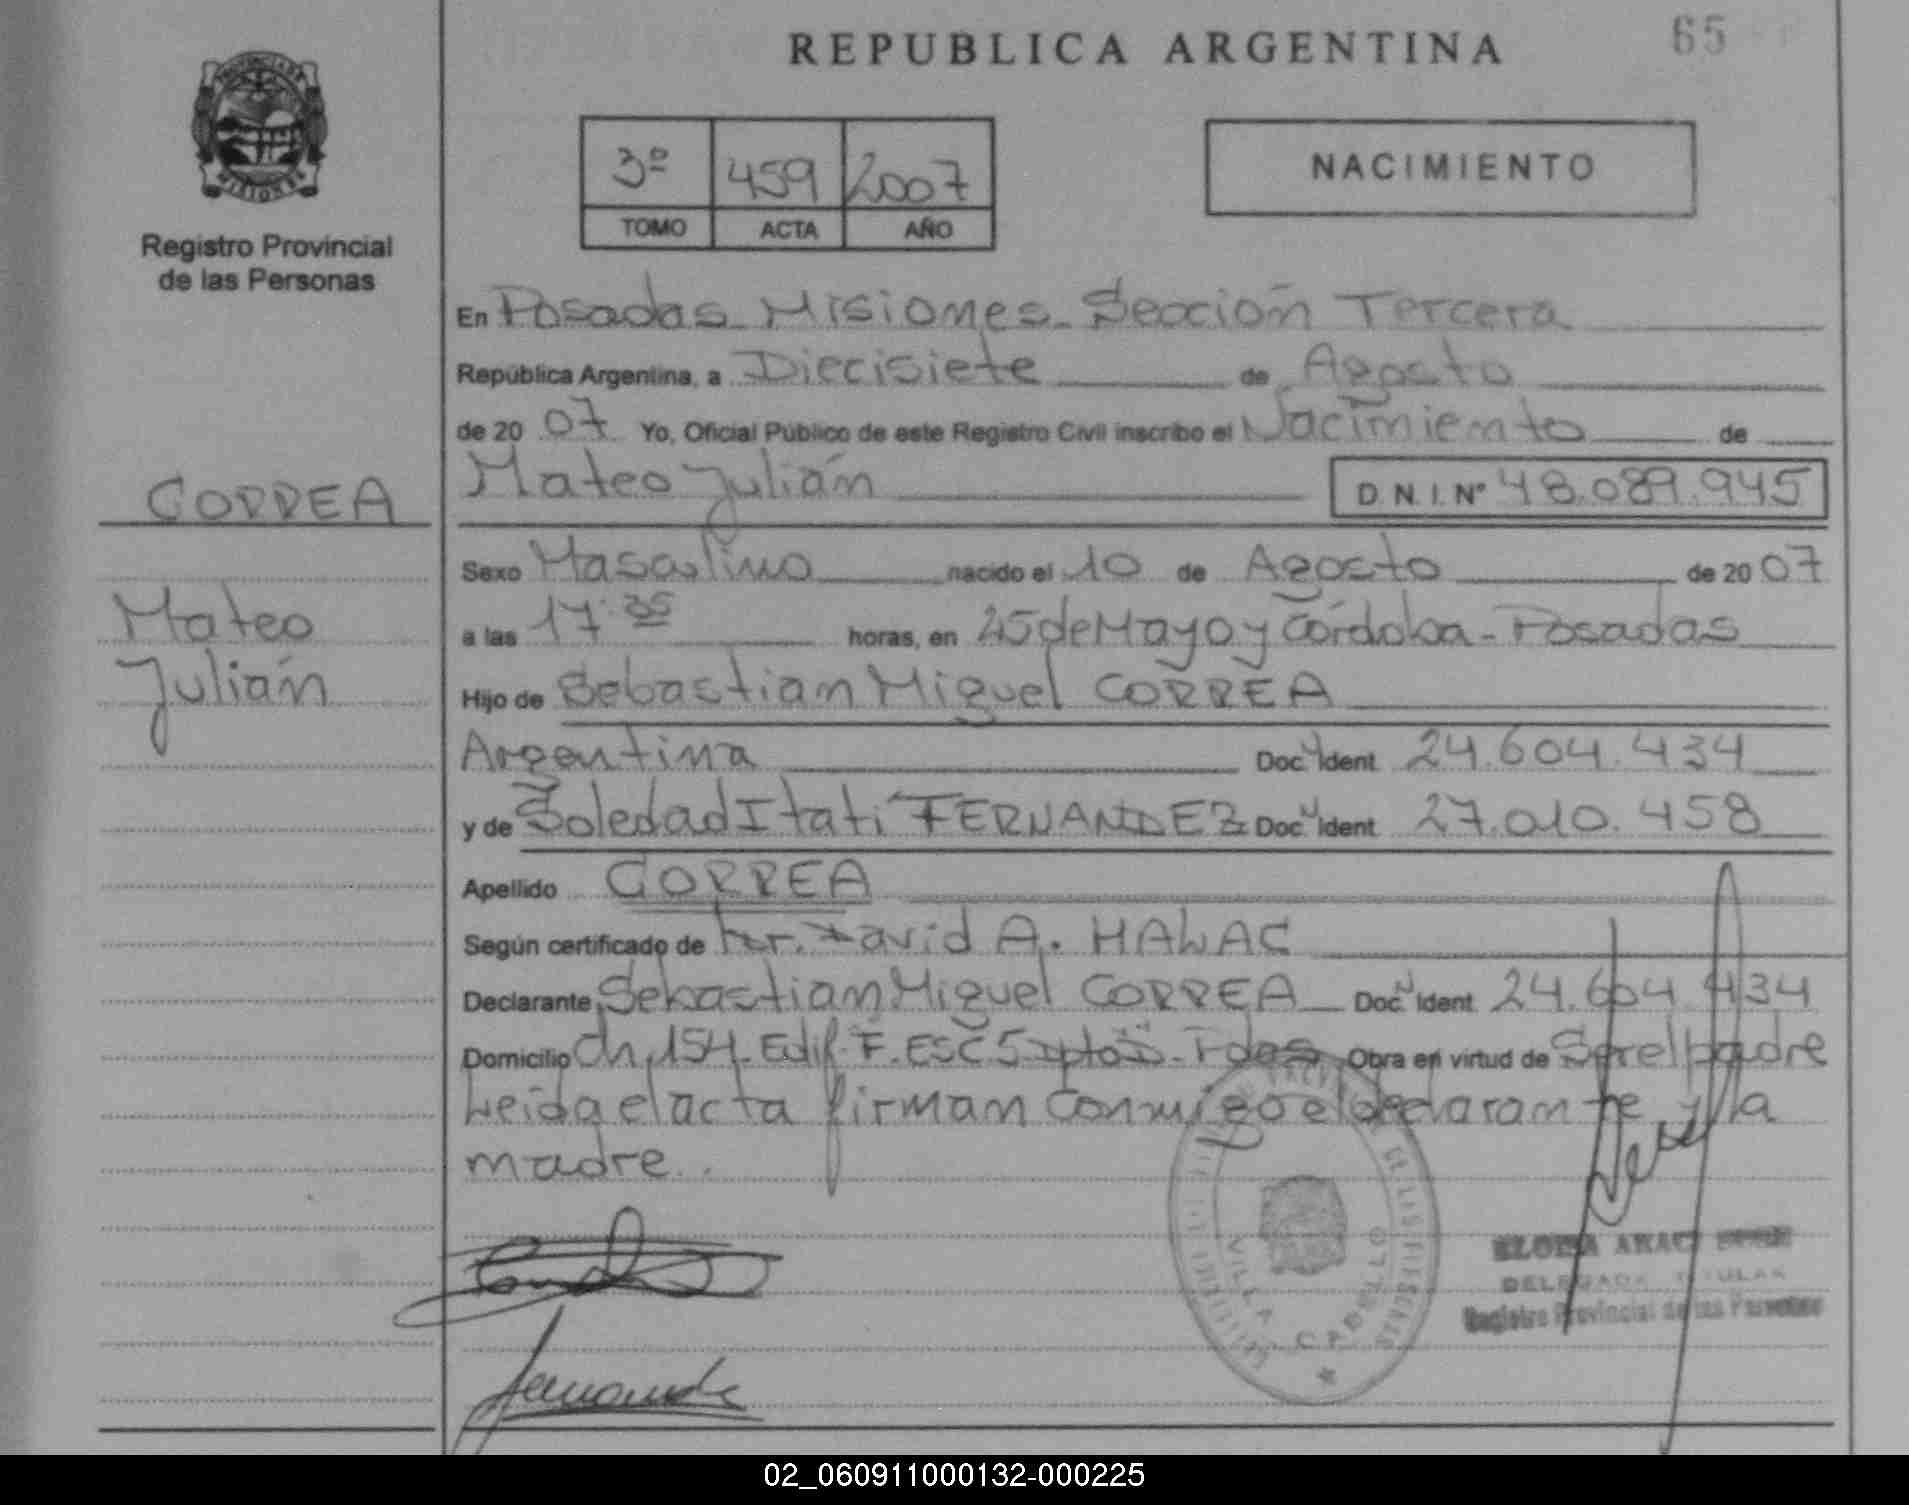 REPUBLICA ARGENTINA
65
PROVINCIA DE
MISIONES
Registro Provincial
de las Personas
3º 459 2007
TOMO ACTA AÑO
NACIMIENTO
En Posadas Misiones Sección Tercera
República Argentina, a Diecisiete de Agosto
de 20 07 Yo, Oficial Público de este Registro Civil inscribo el Nacimiento de
CORREA
Mateo Julián D.N.I. Nº 48.089.945
Sexo Masculino nacido el 10 de Agosto de 20 07
Mateo
a las 17:35 horas, en 25 de Mayo y Córdoba - Posadas
Julián
Hijo de Sebastian Miguel CORREA
Argentina Doc. Ident. 24.604.434
y de Soledad Itati FERNANDEZ Doc. Ident. 27.010.458
Apellido CORREA
Según certificado de Dr. David A. HALAC
Declarante Sebastian Miguel CORREA Doc. Ident. 24.604.434
Domicilio Ch. 154. Edif. F. ESC 5 Pdas Obra en virtud de Ser el padre
Leida el acta firman conmigo el declarante y la
madre.
VILLA CABELLO
DELEGADA TITULAR
Registro Provincial de las Personas
02_060911000132-000225